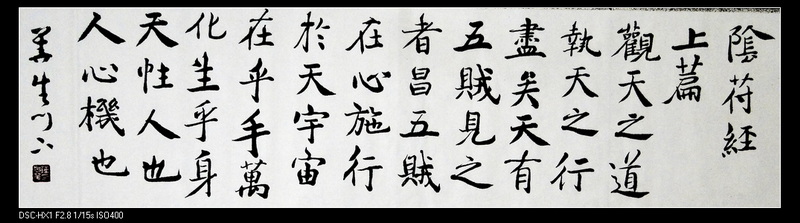 陰苻經
上篇
觀天之道
執天之行
盡矣天有
五賊見之
者昌五賊
在心施行
於天宇宙
在乎手萬
化生乎身
天性人也
人心機也
DSC-HX1 F2.8 1/15s ISO400